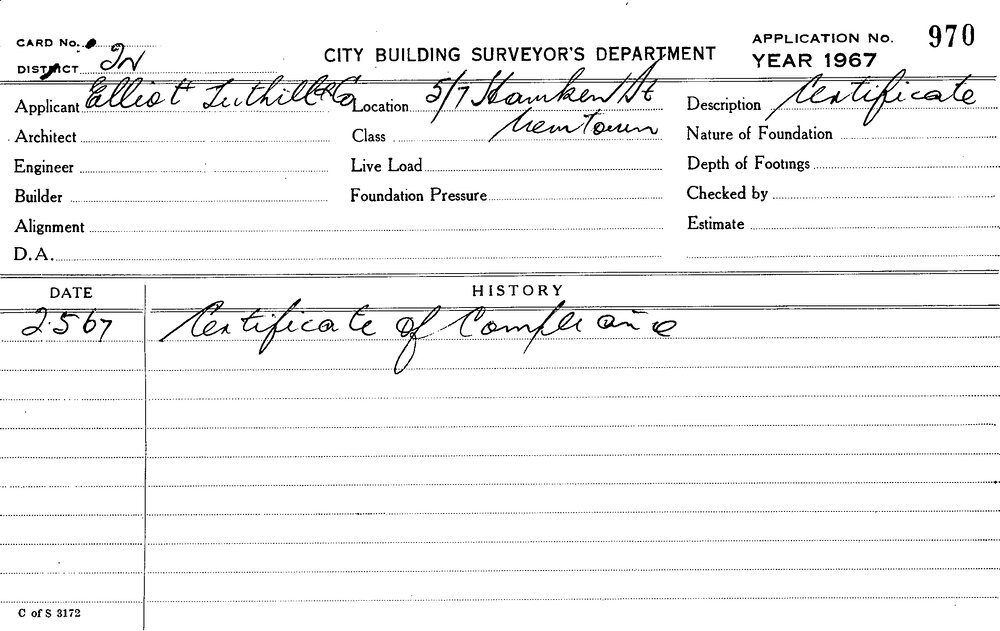 CARD No.
DISTRICT 2N
CITY BUILDING SURVEYOR'S DEPARTMENT
APPLICATION No. 970
YEAR 1967
Applicant Elliott Tuthill & Co
Location 5/7 Hawken St
Newtown
Description Certificate
Architect
Class
Nature of Foundation
Engineer
Live Load
Depth of Footings
Builder
Foundation Pressure
Checked by
Alignment
Estimate
D.A.
DATE
HISTORY
2.5.67 Certificate of Compliance
C of S 3172